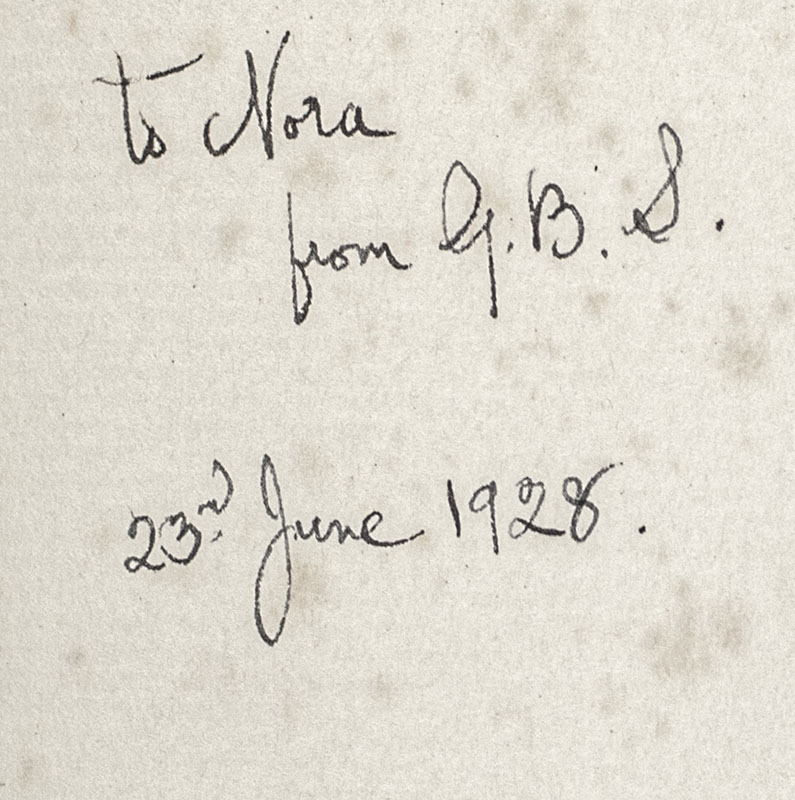 to Nora
from G.B.S.
23rd June 1928.